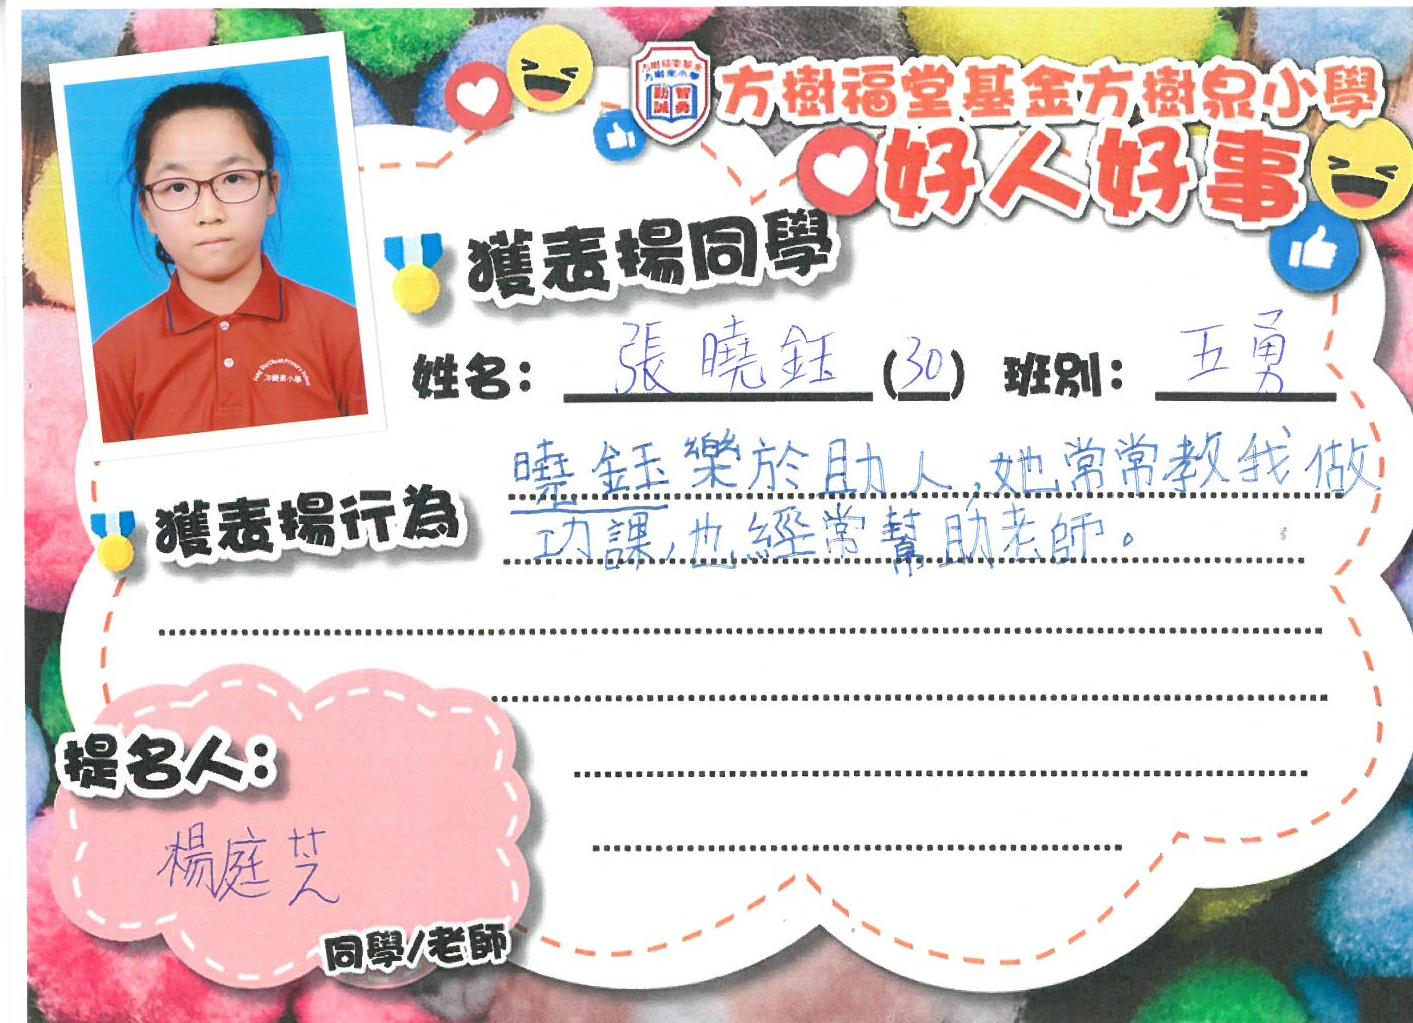 方樹福堂基金方樹泉小學
好人好事
獲表揚同學
姓名： 張曉鈺 (30) 班別： 五勇
獲表揚行為
曉鈺樂於助人，她常常教我做
功課，也經常幫助老師。
提名人：
楊庭芝
同學/老師
方樹泉小學